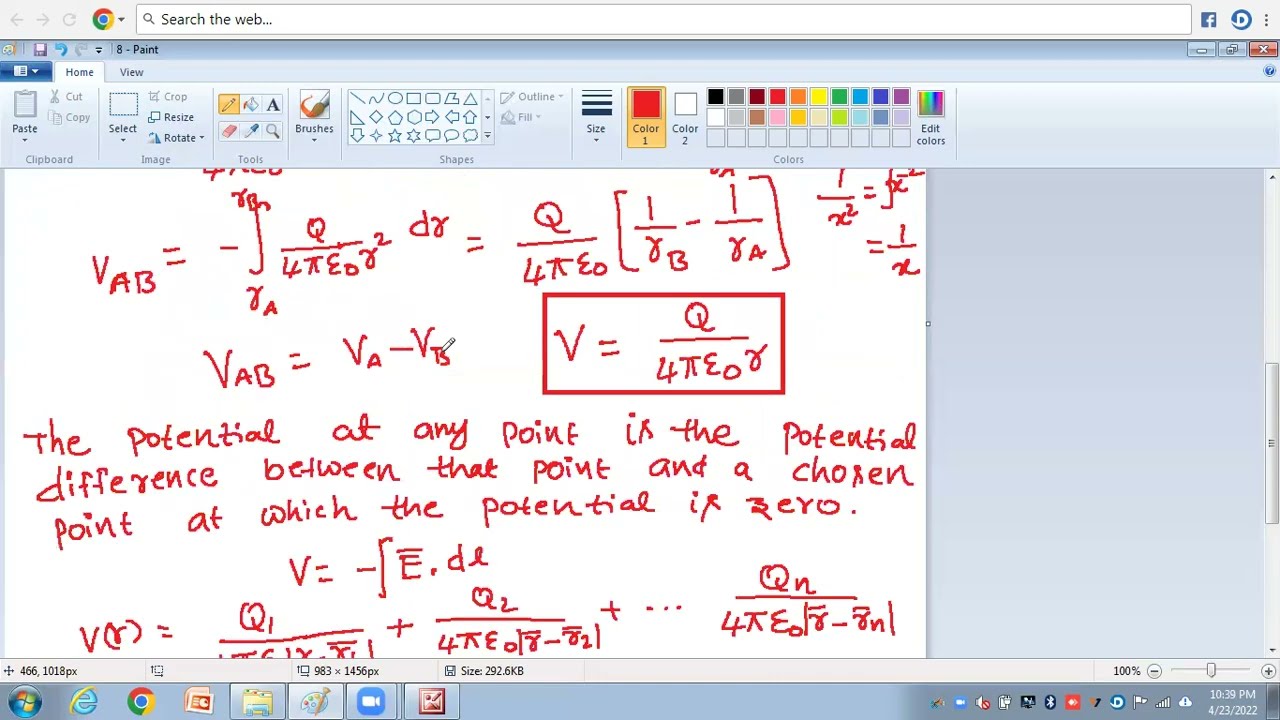 Search the web...
8 - Paint
Home View
Paste
Cut
Copy
Clipboard
Select
Crop
Resize
Rotate
Image
A
Tools
Brushes
Shapes
Outline
Fill
Size
Color 1
Color 2
Edit colors
Colors
V_AB = - ∫_{r_A}^{r_B} Q/(4πε0r²) dr = Q/(4πε0) [1/r_B - 1/r_A]
1/x² = ∫x^-2
= 1/x
V_AB = V_A - V_B
V = Q/(4πε0r)
The potential at any point is the potential
difference between that point and a chosen
point at which the potential is zero.
V = - ∫ E̅. dl
V(r) = Q1 + Q2/(4πε0|r̅-r̅2|) + ... Qn/(4πε0|r̅-r̅n|)
466, 1018px
983 × 1456px
Size: 292.6KB
100%
10:39 PM
4/23/2022